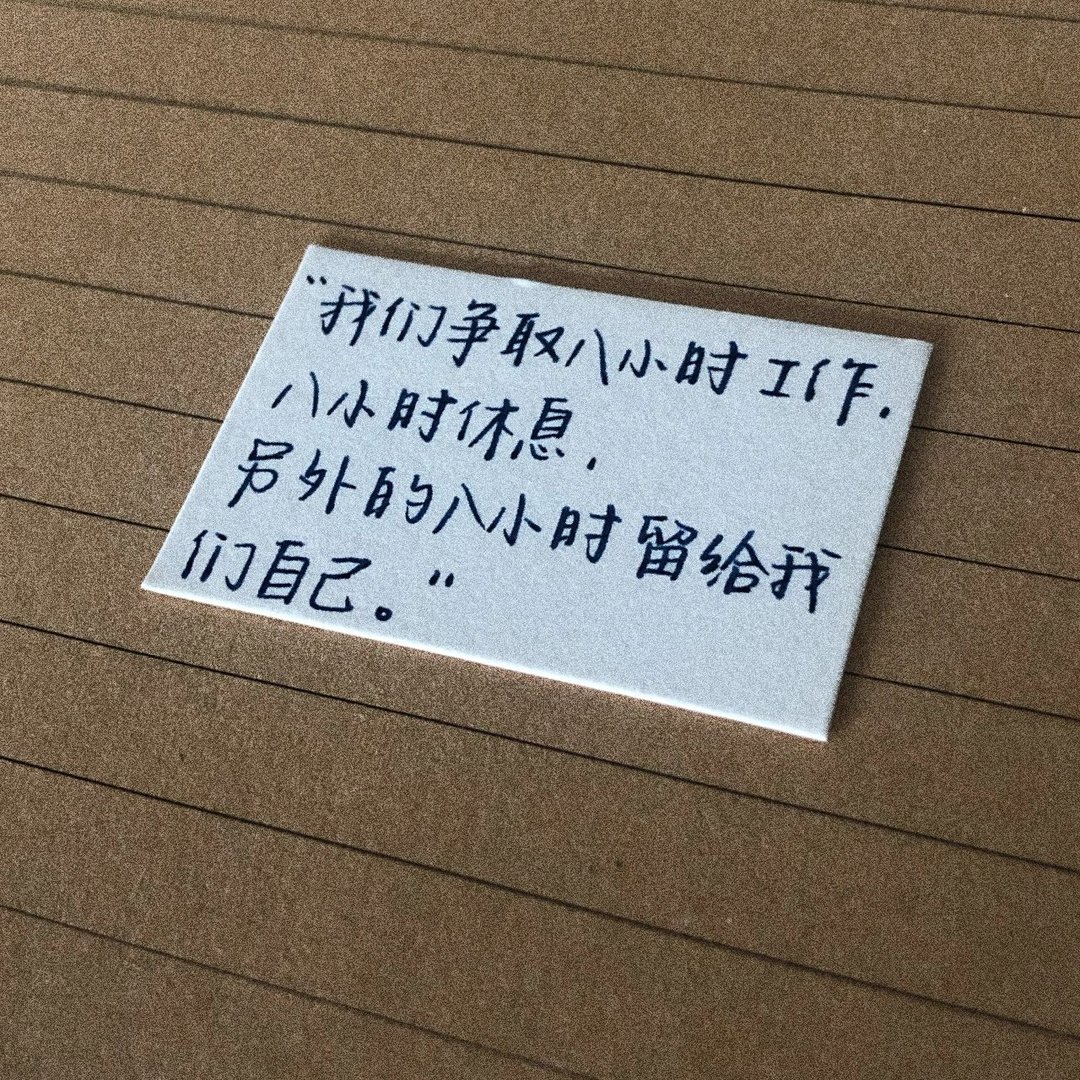 “我们争取八小时工作,
八小时休息,
另外的八小时留给我
们自己。”